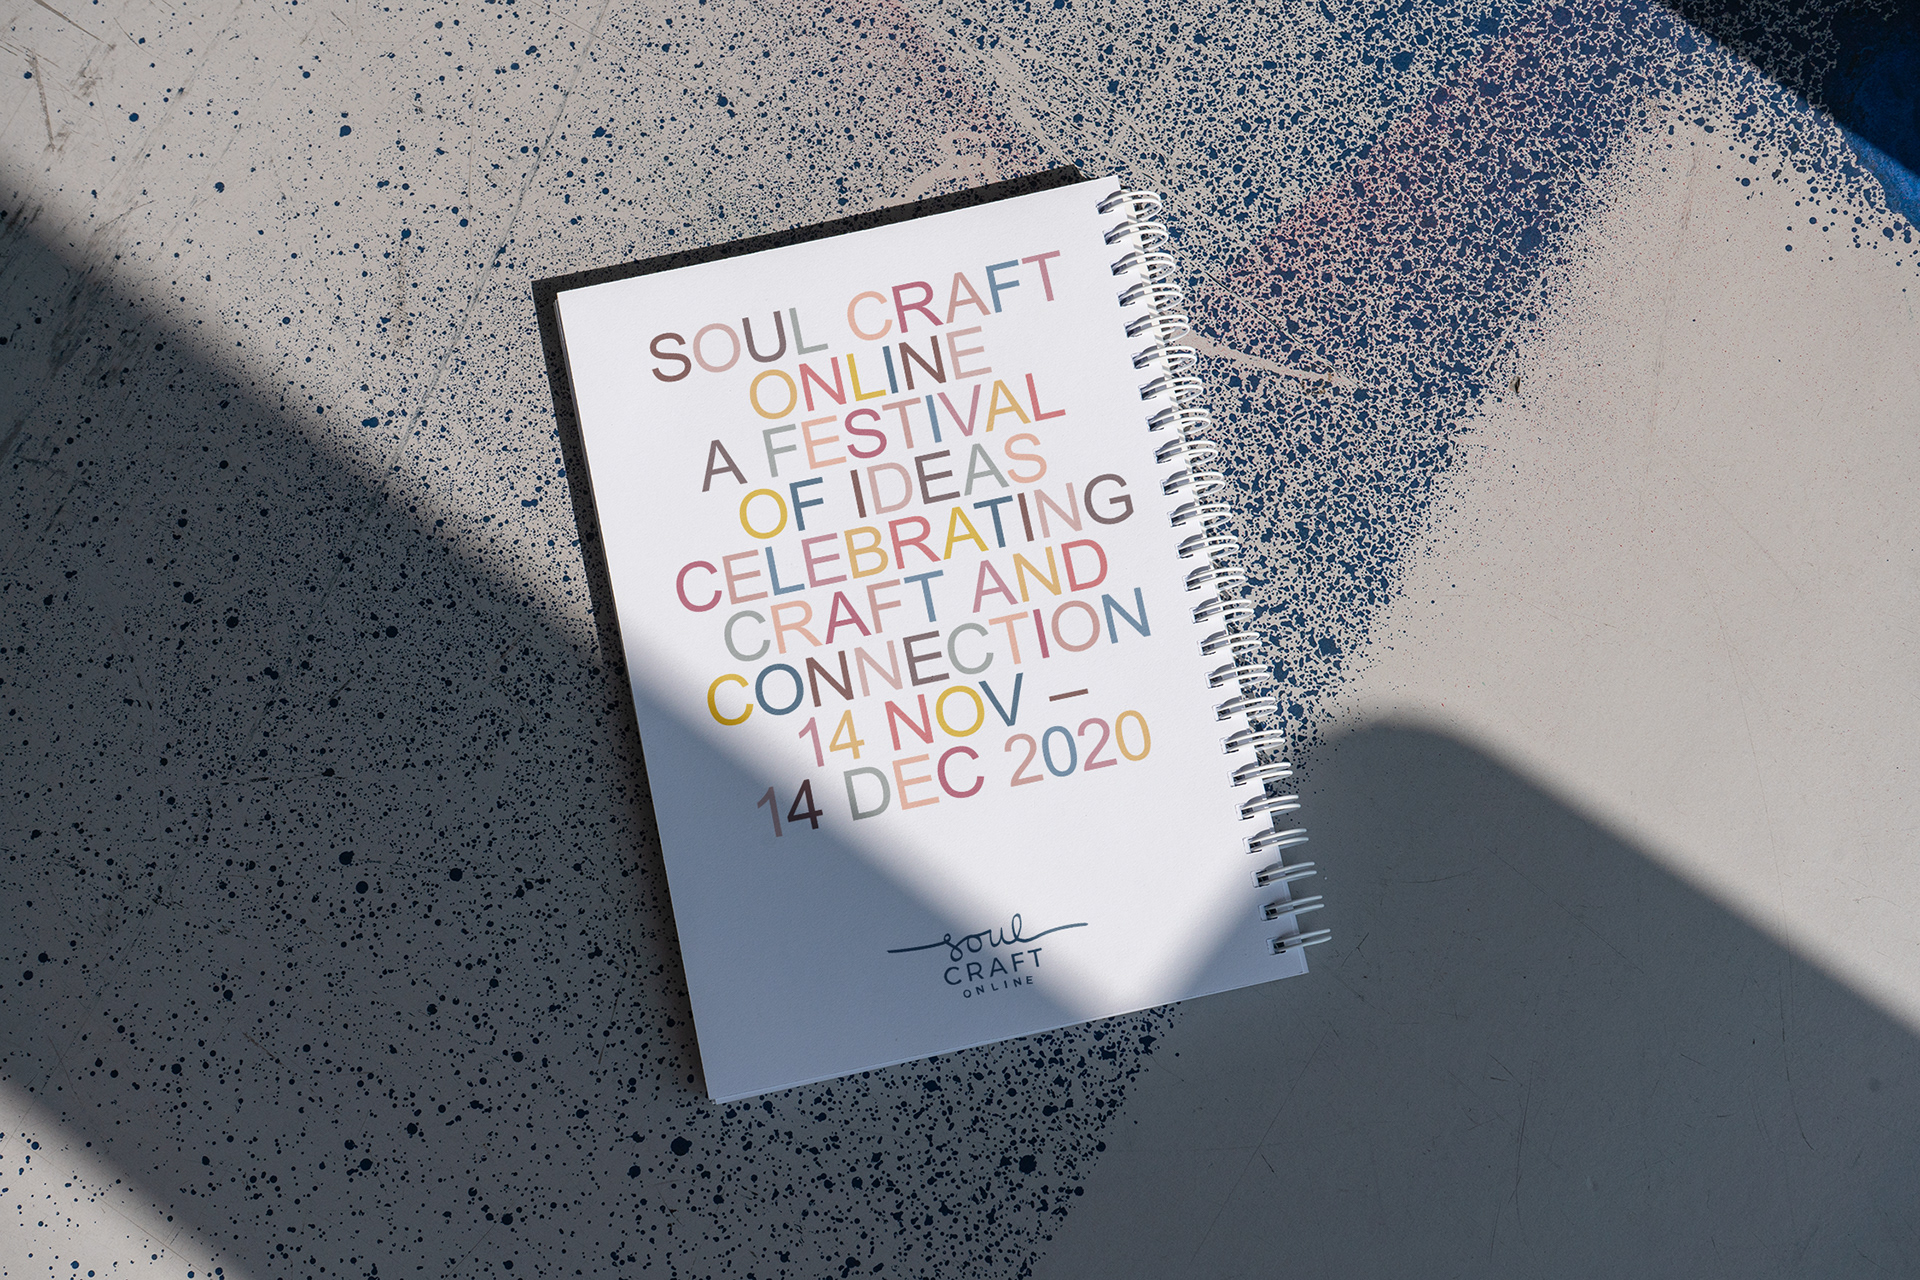 SOUL CRAFT
ONLINE
A FESTIVAL
OF IDEAS
CELEBRATING
CRAFT AND
CONNECTION
14 NOV –
14 DEC 2020
soul
CRAFT
ONLINE